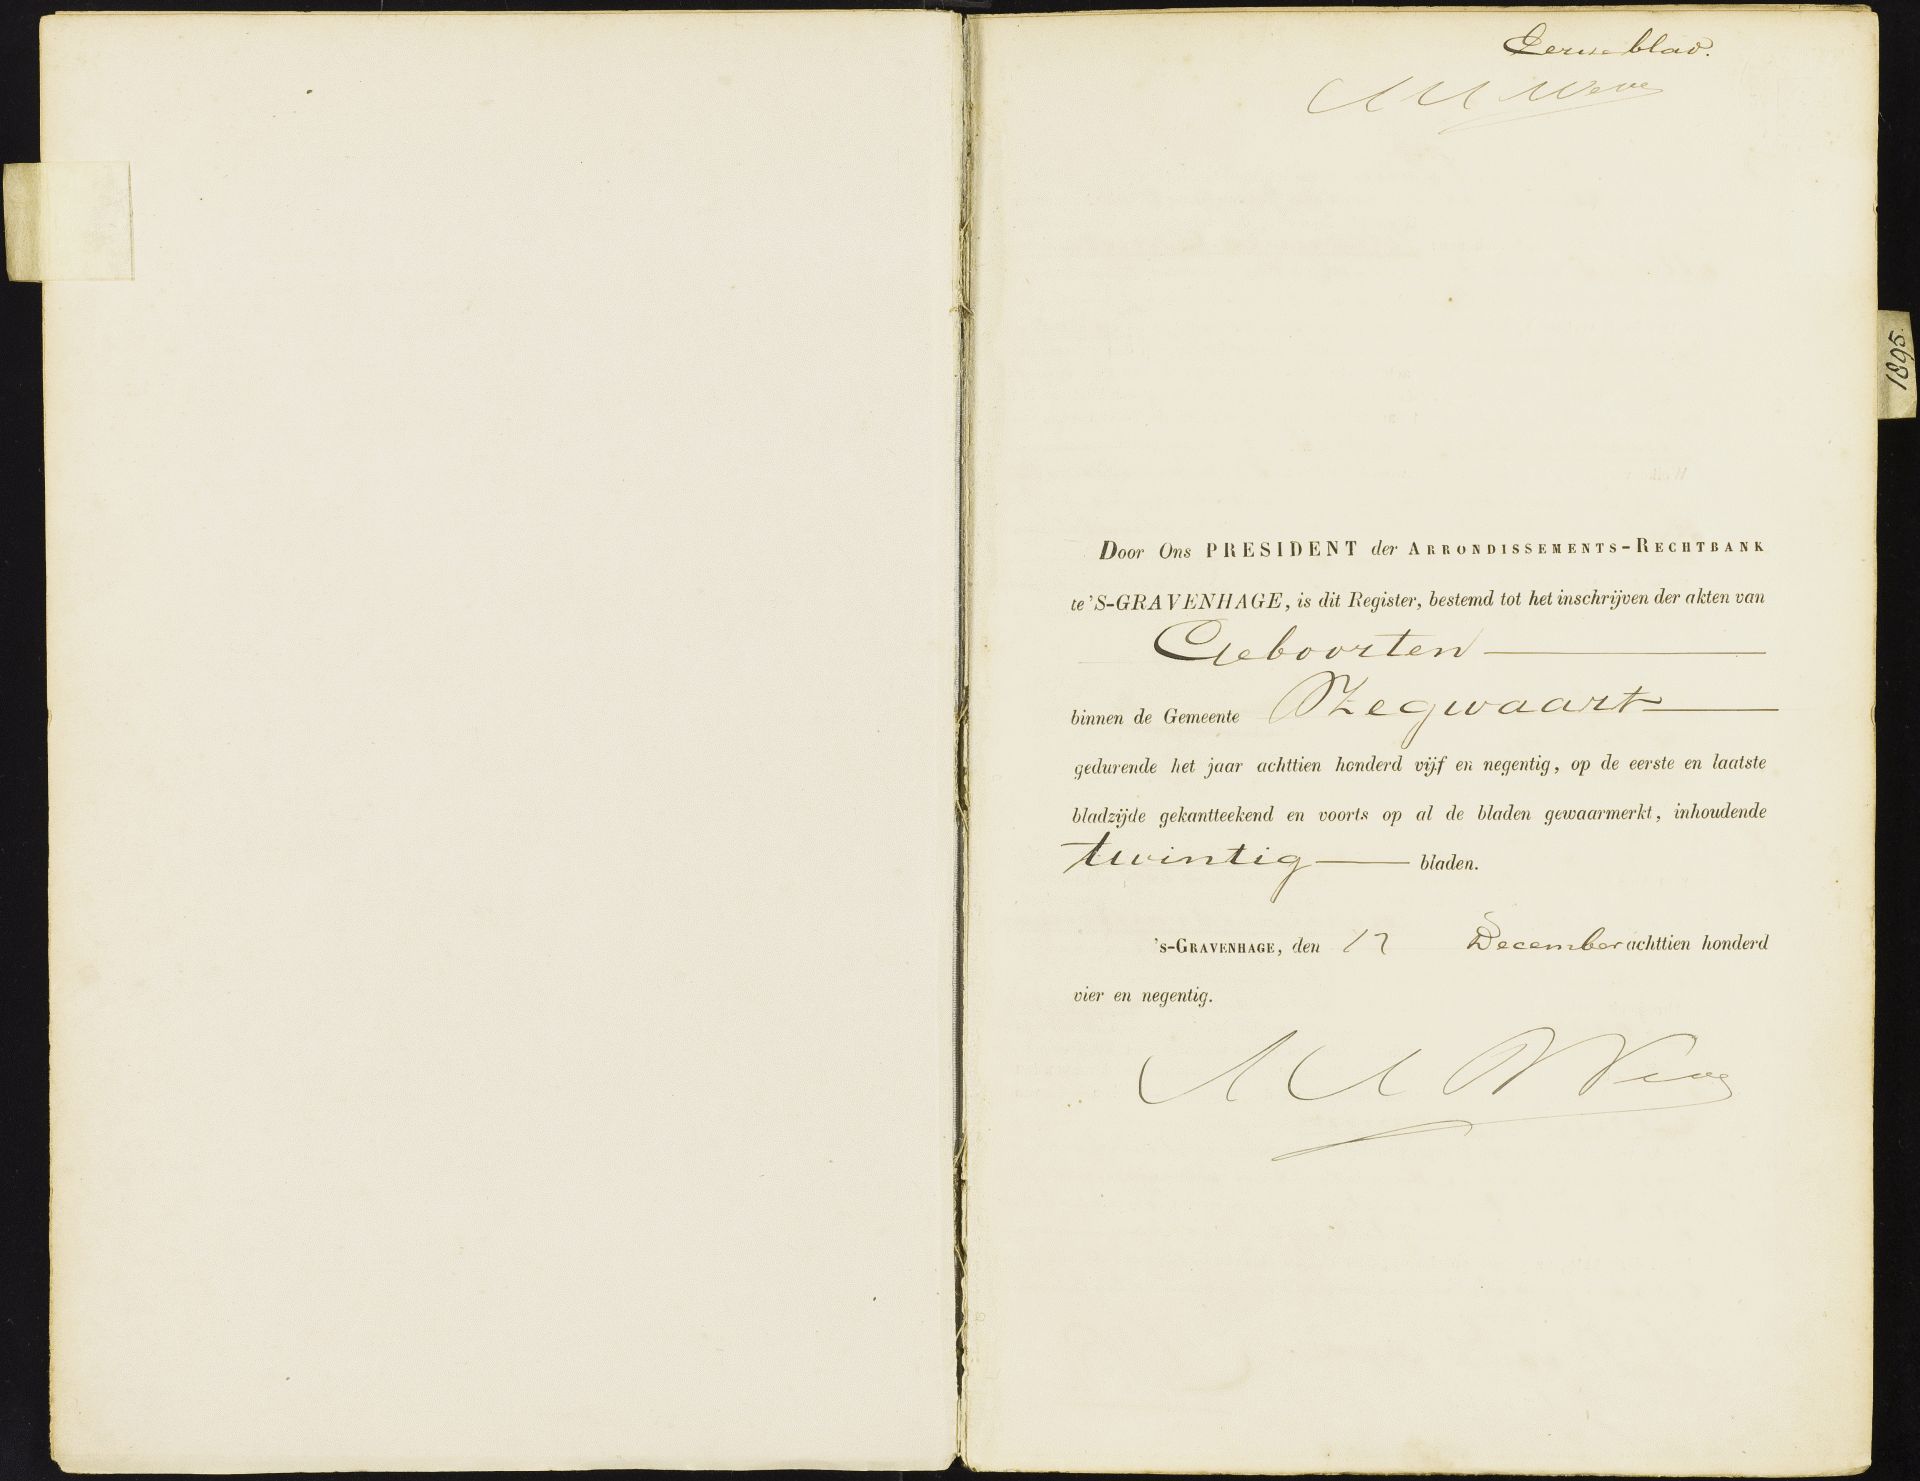 Eerste blad.
Door Ons PRESIDENT der ARRONDISSEMENTS-RECHTBANK
te 'S-GRAVENHAGE, is dit Register, bestemd tot het inschrijven der akten van
Geboorten
binnen de Gemeente Zegwaart
gedurende het jaar achttien honderd vijf en negentig, op de eerste en laatste
bladzijde gekantteekend en voorts op al de bladen gewaarmerkt, inhoudende
twintig bladen.
's-GRAVENHAGE, den 17 December achttien honderd
vier en negentig.
1895.